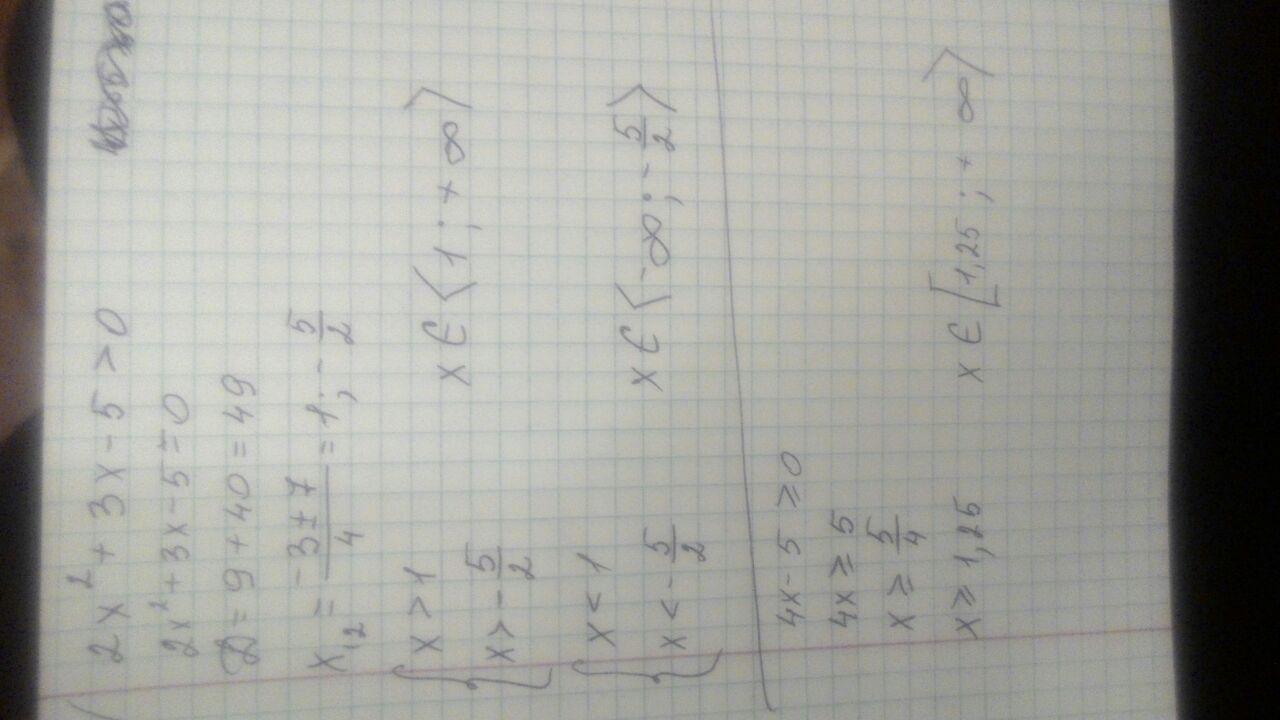 2x² + 3x - 5 > 0
2x² + 3x - 5 = 0
D = 9 + 40 = 49
x₁,₂ = (-3 ± 7)/4 = 1; -5/2
{ x > 1
x > -5/2 x ∈ (1; +∞)
{ x < 1
x < -5/2 x ∈ (-∞; -5/2)
4x - 5 ≥ 0
4x ≥ 5
x ≥ 5/4
x ≥ 1,25 x ∈ [1,25; +∞)